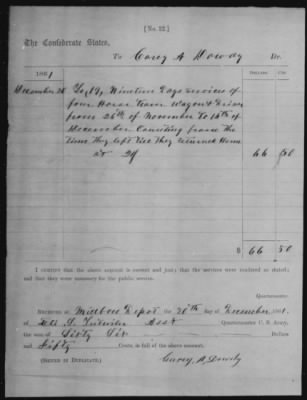 [No. 12.]
The Confederate States,
To Carey A Dowdy Dr.
1861 DOLLARS CTS.
December 20 To (19) Nineteen Days services of
four Horse Team Wagon & Driver
from 26th of November To 14th of
December Counting from the
time they left till they returned Home
at 3½ 66 50
$ 66 50
I CERTIFY that the above account is correct and just; that the services were rendered as stated;
and that they were necessary for the public service.
Quartermaster.
RECEIVED at Millboro Depot the 20th day of December 1861,
of Quartermaster C. S. Army,
the sum of Sixty Six Dollars
and Fifty Cents, in full of the above account.
(SIGNED IN DUPLICATE.) Carey A Dowdy